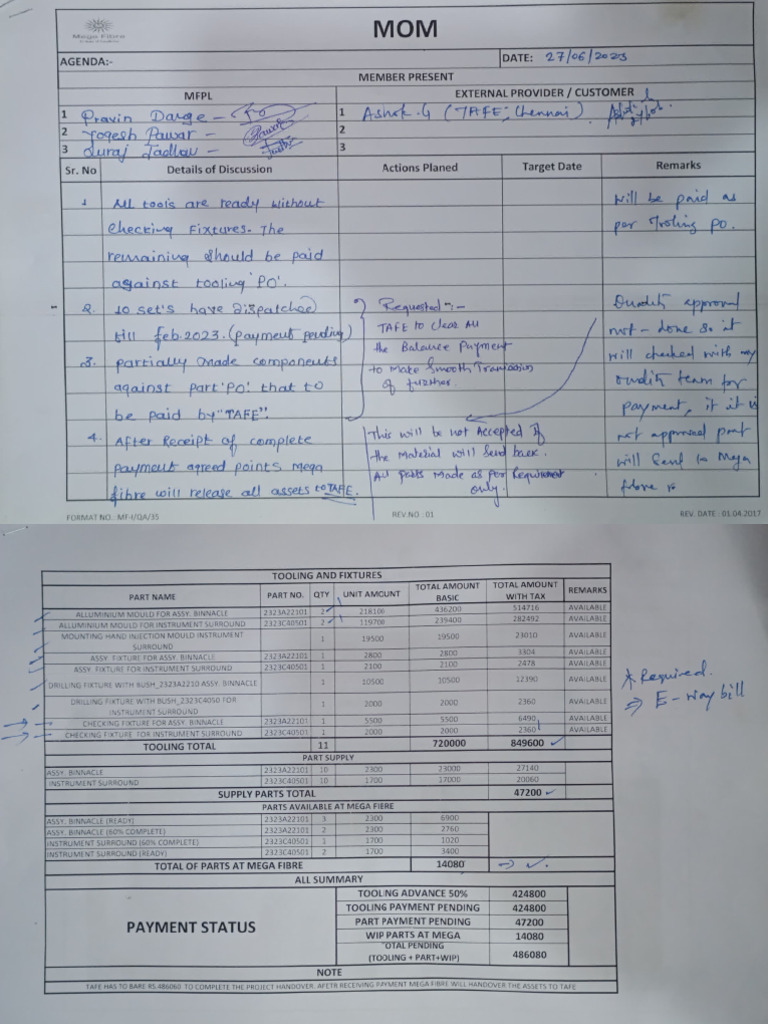 Mega Fibre
MOM
AGENDA:-
DATE: 27/06/2023
MEMBER PRESENT
MFPL
EXTERNAL PROVIDER / CUSTOMER
1 Pravin Darge -
1 Ashok.G (TAFE; Chennai)
2 Yogesh Pawar -
2
3 Suraj Jadhav -
3
Sr. No Details of Discussion Actions Planed Target Date Remarks
1 All tools are ready without
checking Fixtures. The
remaining should be paid
against tooling 'PO'.
will be paid as
per Tooling PO.
2. 10 set's have Dispatched
till feb.2023. (payment pending)
3. partially made components
against part 'PO' that to
be paid by "TAFE".
Requested :-
TAFE to clear All
the Balance Payment
to Make Smooth Transaction
of further.
Quality approval
not - done so it
will checked with my
quality team for
payment, if it is
not approved part
will send to Mega
fibre
4. After Receipt of complete
payment agreed points Mega
fibre will release all assets to TAFE.
This will be not Accepted if
the Material will Send back.
All parts Made as per Requirement
only.
FORMAT NO.: MF-I/QA/35 REV.NO : 01 REV. DATE : 01.04.2017
TOOLING AND FIXTURES
PART NAME PART NO. QTY UNIT AMOUNT TOTAL AMOUNT BASIC TOTAL AMOUNT WITH TAX REMARKS
ALLUMINIUM MOULD FOR ASSY. BINNACLE 2323A22101 2 218100 436200 514716 AVAILABLE
ALLUMINIUM MOULD FOR INSTRUMENT SURROUND 2323C40501 2 119700 239400 282492 AVAILABLE
MOUNTING HAND INJECTION MOULD INSTRUMENT SURROUND 1 19500 19500 23010 AVAILABLE
ASSY. FIXTURE FOR ASSY. BINNACLE 2323A22101 1 2800 2800 3304 AVAILABLE
ASSY. FIXTURE FOR INSTRUMENT SURROUND 2323C40501 1 2100 2100 2478 AVAILABLE
DRILLING FIXTURE WITH BUSH_2323A2210 ASSY. BINNACLE 1 10500 10500 12390 AVAILABLE
DRILLING FIXTURE WITH BUSH_2323C4050 FOR INSTRUMENT SURROUND 1 2000 2000 2360 AVAILABLE
CHECKING FIXTURE FOR ASSY. BINNACLE 2323A22101 1 5500 5500 6490 AVAILABLE
CHECKING FIXTURE FOR INSTRUMENT SURROUND 2323C40501 1 2000 2000 2360 AVAILABLE
TOOLING TOTAL 11 720000 849600
* Required.
⇒ E-way bill
PART SUPPLY
ASSY. BINNACLE 2323A22101 10 2300 23000 27140
INSTRUMENT SURROUND 2323C40501 10 1700 17000 20060
SUPPLY PARTS TOTAL 47200
PARTS AVAILABLE AT MEGA FIERE
ASSY. BINNACLE (READY) 2323A22101 3 2300 6900
ASSY. BINNACLE (60% COMPLETE) 2323A22101 2 2300 2760
INSTRUMENT SURROUND (60% COMPLETE) 2323C40501 1 1700 1020
INSTRUMENT SURROUND (READY) 2323C40501 2 1700 3400
TOTAL OF PARTS AT MEGA FIBRE 14080
ALL SUMMARY
PAYMENT STATUS
TOOLING ADVANCE 50% 424800
TOOLING PAYMENT PENDING 424800
PART PAYMENT PENDING 47200
WIP PARTS AT MEGA 14080
TOTAL PENDING
(TOOLING + PART+WIP) 486080
NOTE
TAFE HAS TO BARE RS.486060 TO COMPLETE THE PROJECT HANDOVER. AFETR RECEIVING PAYMENT MEGA FIBRE WILL HANDOVER THE ASSETS TO TAFE